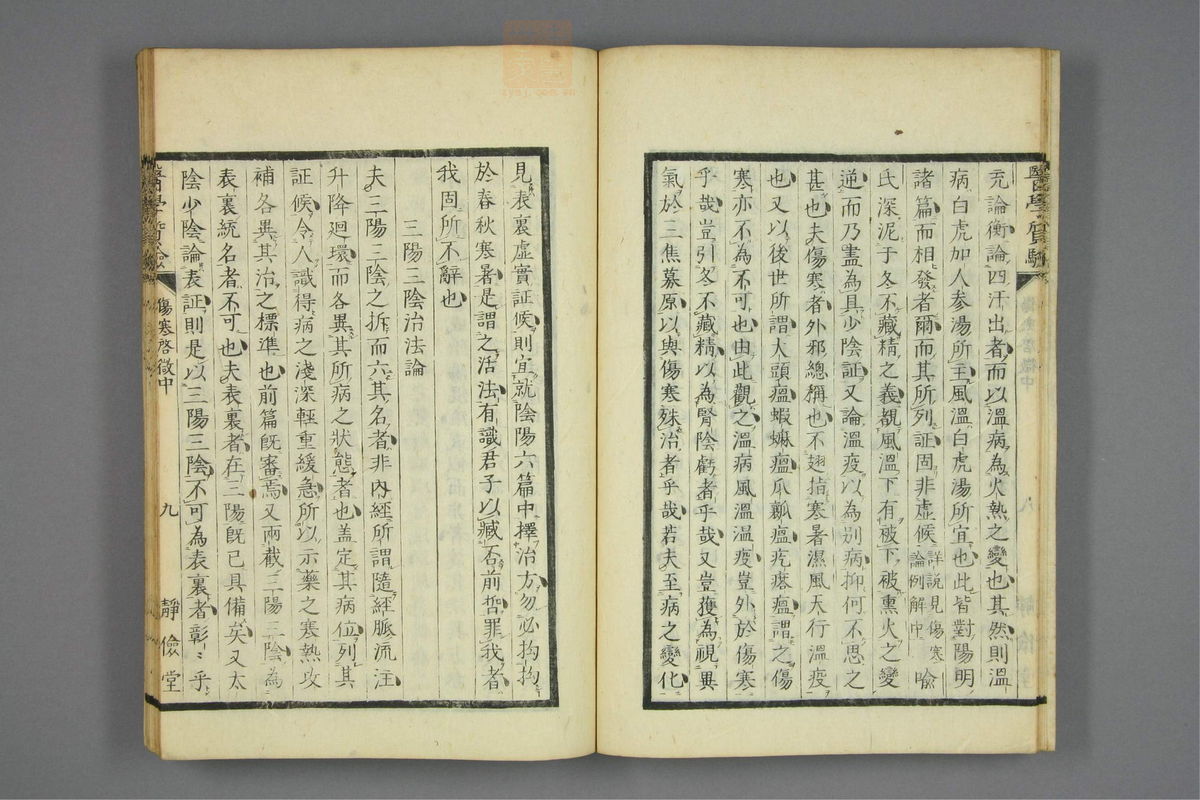 充論衡論四汗出者而以溫病為火熱之變也其然則溫
病白虎加人參湯所主風溫白虎湯所宜也此皆對陽明
諸篇而相發者爾而其所列証固非虛候詳説見傷寒論例解中喻
氏深泥于冬不藏精之義覩風溫下有被下被熏火之變
逆而乃盡為具少陰証又論溫疫以為別病抑何不思之
甚也夫傷寒者外邪總稱也不翅指寒暑濕風天行溫疫
也又以後世所謂大頭瘟蝦蟆瘟瓜瓤瘟疙瘩瘟謂之傷
寒亦不為不可也由此觀之溫病風溫溫疫豈外於傷寒
乎哉豈引冬不藏精以為腎陰虧者乎哉又豈獲為視異
氣於三焦募原以與傷寒殊治者乎哉若夫至病之變化
醫學質驗
見表裏虛實証候則宜就陰陽六篇中擇治方勿必拘拘
於春秋寒暑是謂之活法有識君子以臧否前哲罪我者
我固所不辭也
三陽三陰治法論
夫三陽三陰之拆而六其名者非內經所謂隨經脈流注
升降迴環而各異其所病之狀態者也盖定其病位列其
証候令人識得病之淺深輕重緩急所以示藥之寒熱攻
補各異其治之標準也前篇既審焉又兩截三陽三陰為
表裏統名者不可也夫表裏者在三陽既已具備矣又太
陰少陰論表証則是以三陽三陰不可為表裏者彰彰乎
醫學質驗
傷寒啓微中
九
靜儉堂